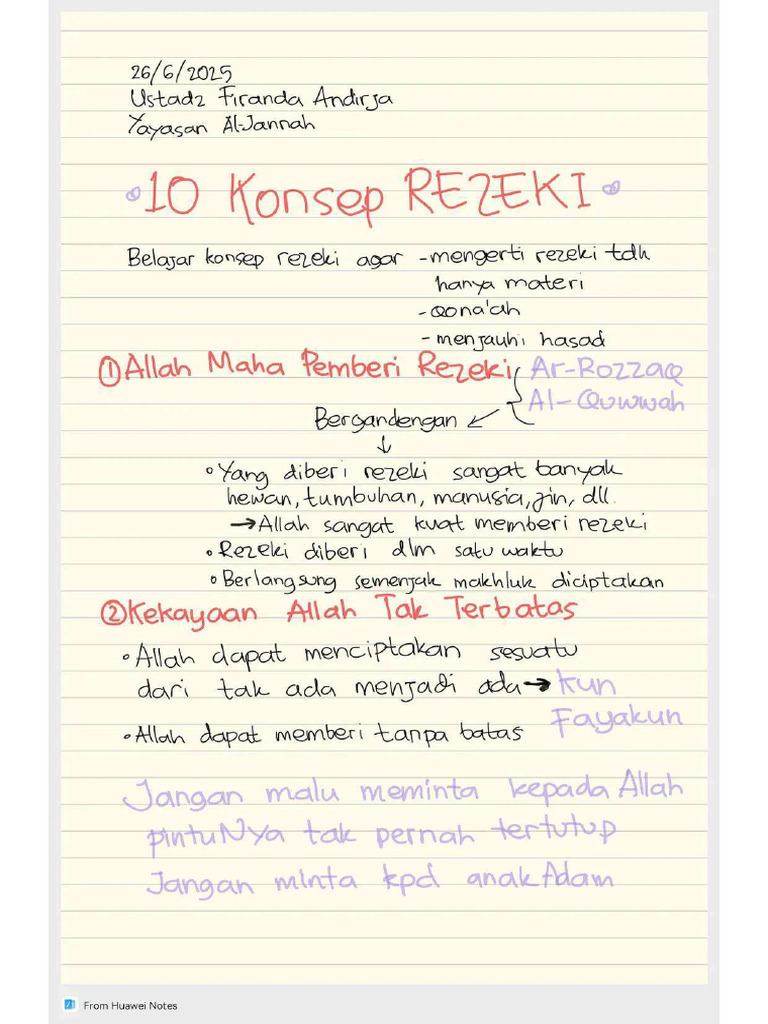 26/6/2025
Ustadz Firanda Andirja
Yayasan Al-Jannah
10 Konsep REZEKI
Belajar konsep rezeki agar -mengerti rezeki tdk
hanya materi
-Qona'ah
-menjauhi hasad
① Allah Maha Pemberi Rezeki Ar-Rozzaq
Al-Quwwah
Bergandengan ↙
↓
• Yang diberi rezeki sangat banyak
hewan, tumbuhan, manusia, jin, dll.
→ Allah sangat kuat memberi rezeki
• Rezeki diberi dlm satu waktu
• Berlangsung semenjak makhluk diciptakan
② Kekayaan Allah Tak Terbatas
• Allah dapat menciptakan sesuatu
dari tak ada menjadi ada → Kun
Fayakun
• Allah dapat memberi tanpa batas
Jangan malu meminta kepada Allah
pintuNya tak pernah tertutup
Jangan minta kpd anak Adam
From Huawei Notes